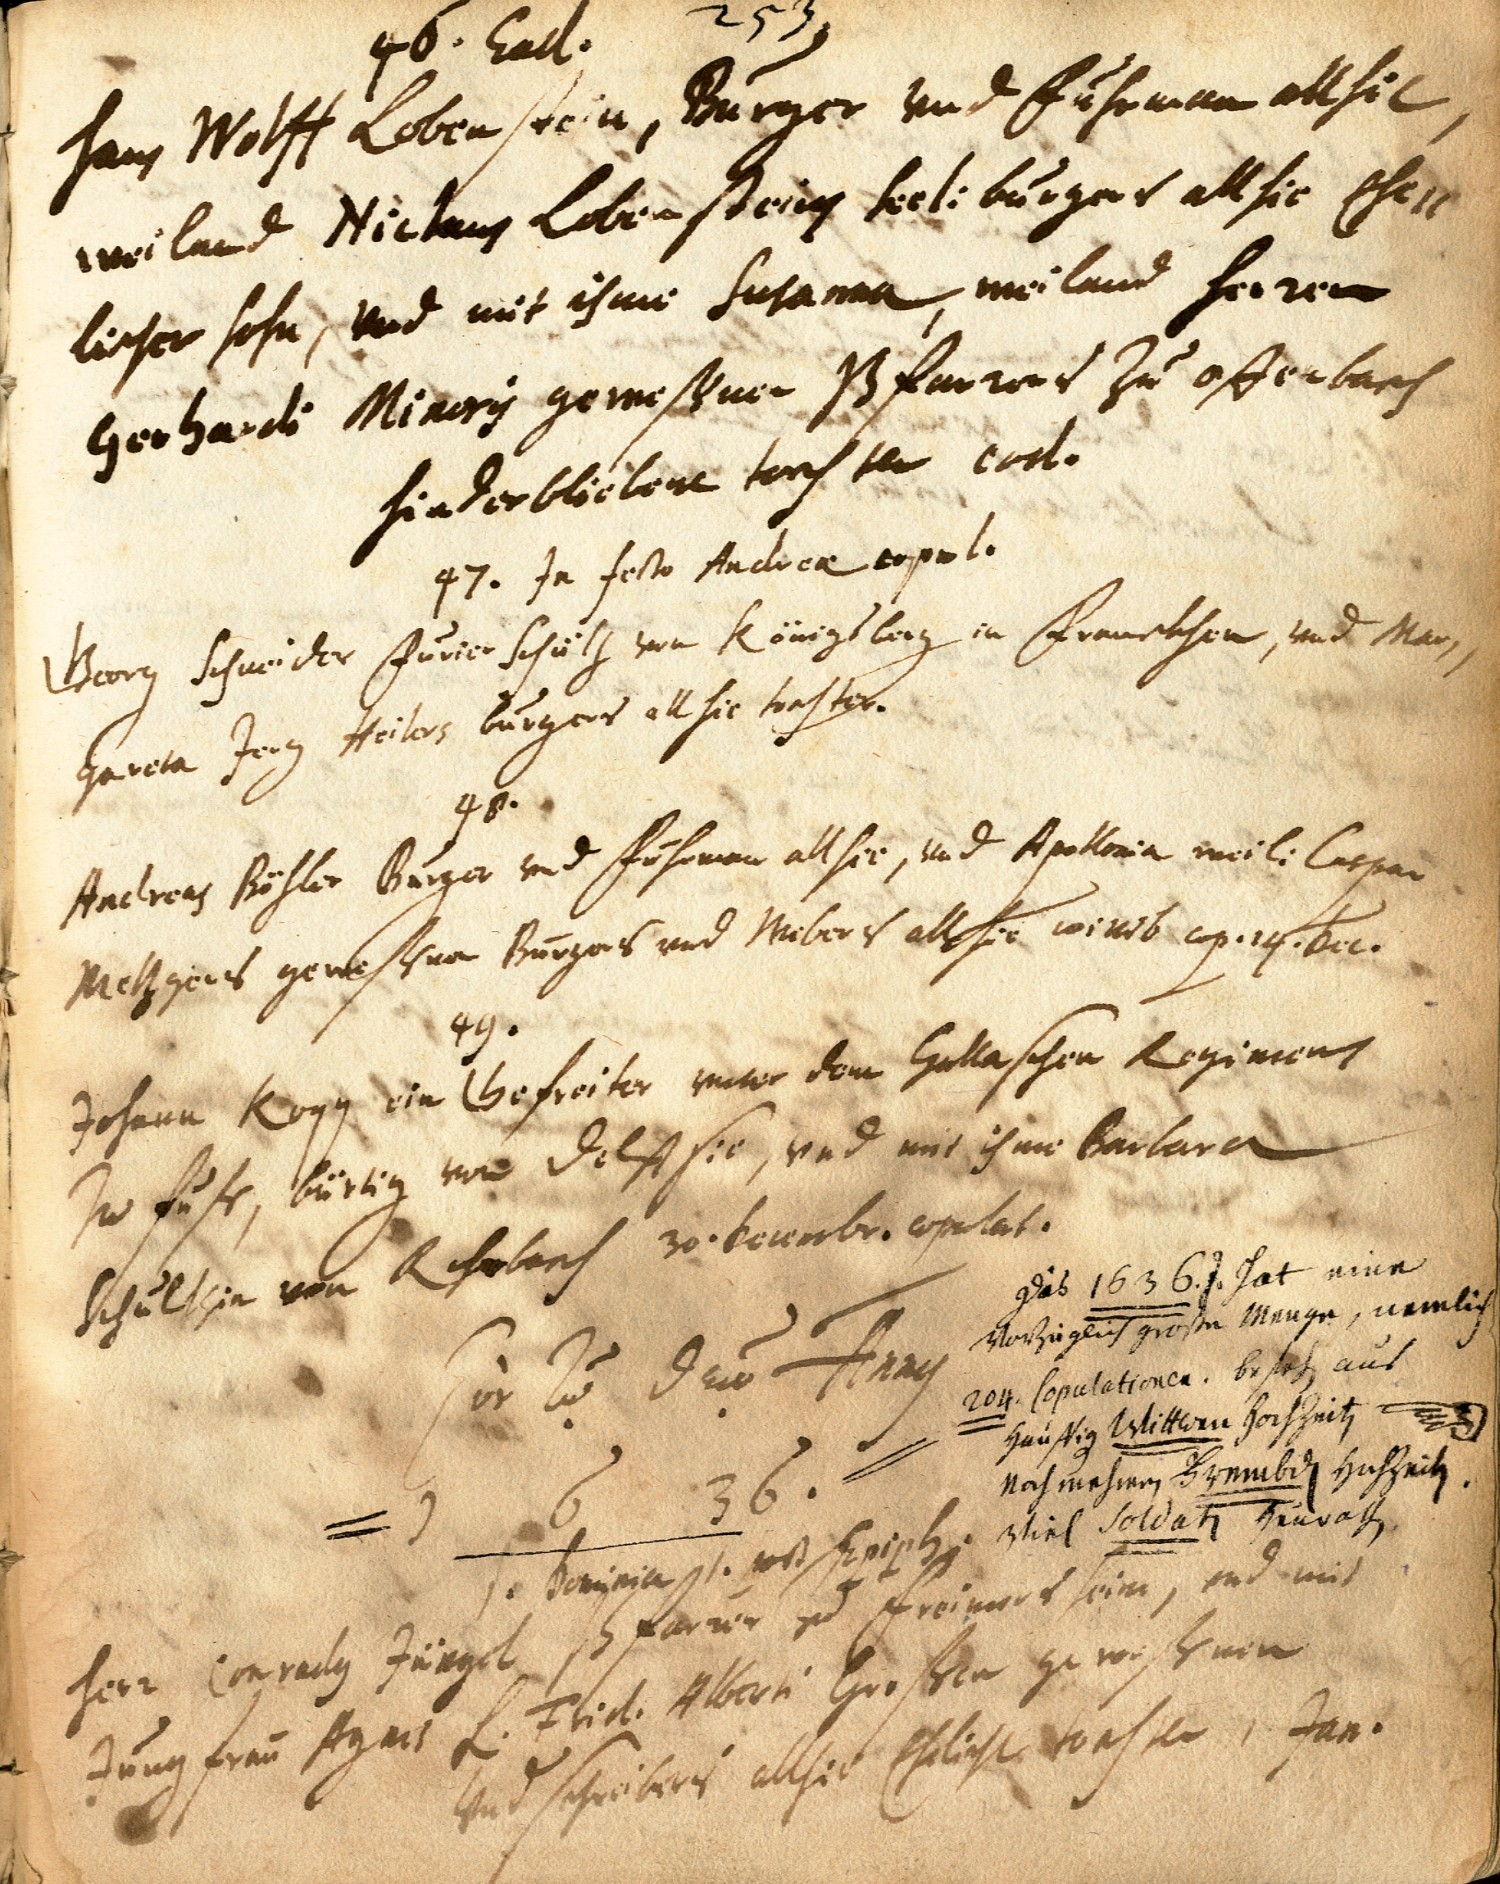 253
46. Eod.
Hans Wolff Lobenstein, Burger vnd Fuhrman allhie,
weiland Niclaus Lobensteins seel: burgers allhie Ehe„
licher sohn, vnd mit ihme Susanna, weiland Herren
Gerhardi Minoris geweßnen Pfarrers zu Offenbach
hinderbliebene tochter eod.
47. In festo Andreae copul.
Georg Schneider Furier Schütz von Königsberg in Franckhen, vnd Mar„
gareta Jerg Heilers burgers allhie tochter.
48.
Andreas Böhler Burger vnd Fuhrman allhie, vnd Apollonia weil: Caspar
Metzgers geweßnen Burgers vnd Webers allhie wittib cop. 14. Dec.
49.
Johann Kopp ein Gefreiter vnter dem Gallaschen Regiment
zu fuß, bürtig von, vnd mit ihme Barbara
Schultzin von Rohrbach 30. Decembr. copulat.
Das 1636. J. hat eine
vorzüglich große Menge, nemlich
204. Copulationen. besteh. aus
häuffig Wittwen Hochzeit,
noch mehrern Frembd. Hochzeit.
Viel Soldat. Heurath.
1636.
1. Dominica 1. post Epiph.
Herr Conradus Jüngel Pfarrer zu Freimersheim, vnd mit
Jungfrau Agnes H. Frid. Alberti Großen geweßnen
schreibers allhie Eheliche tochter, Jan.